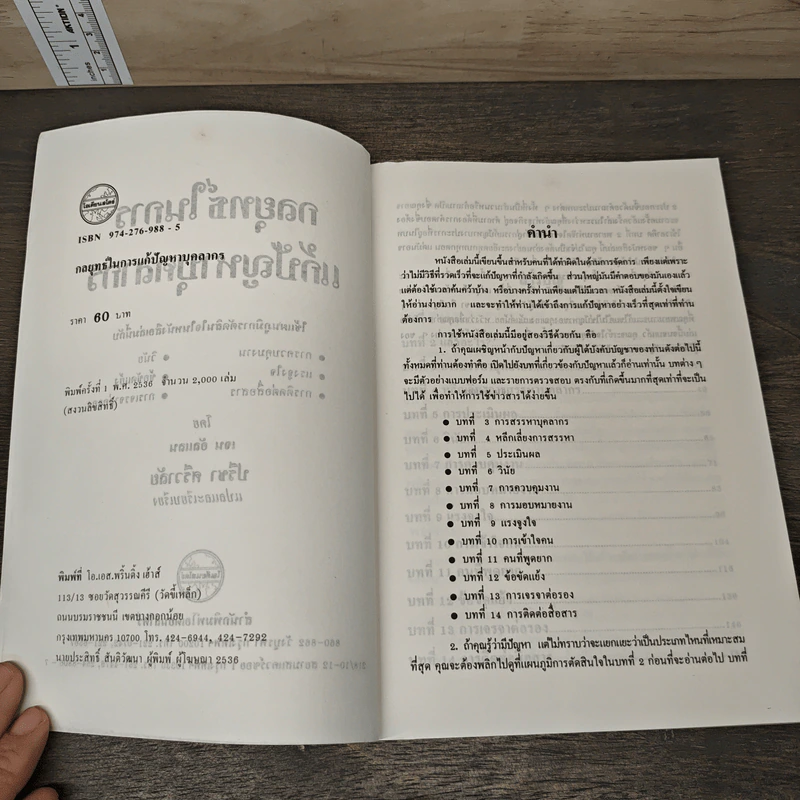 โอเดียนสโตร์
ISBN 974-276-988-5
กลยุทธในการแก้ปัญหาบุคลากร
ราคา 60 บาท
พิมพ์ครั้งที่ 1 พ.ศ. 2536 จำนวน 2,000 เล่ม
(สงวนลิขสิทธิ์)
พิมพ์ที่ โอ.เอส.พริ้นติ้ง เฮ้าส์
113/13 ซอยวัดสุวรรณคีรี (วัดขี้เหล็ก)
ถนนบรมราชชนนี เขตบางกอกน้อย
กรุงเทพมหานคร 10700 โทร. 424-6944, 424-7292
นายประสิทธิ์ สันติวัฒนา ผู้พิมพ์ ผู้โฆษณา 2536
คำนำ
หนังสือเล่มนี้เขียนขึ้นสำหรับคนที่ได้ทำผิดในด้านการจัดการ เพียงแต่เพราะ
ว่าไม่มีวิธีที่รวดเร็วที่จะแก้ปัญหาที่กำลังเกิดขึ้น ส่วนใหญ่มันมีคำตอบของมันเองแล้ว
แต่ต้องใช้เวลาค้นคว้าบ้าง หรือบางครั้งท่านเพียงแต่ไม่มีเวลา หนังสือเล่มนี้ตั้งใจเขียน
ให้อ่านง่ายมาก และจะทำให้ท่านได้เข้าถึงการแก้ปัญหาอย่างเร็วที่สุดเท่าที่ท่าน
ต้องการ
การใช้หนังสือเล่มนี้มีอยู่สองวิธีด้วยกัน คือ
1. ถ้าคุณเผชิญหน้ากับปัญหาเกี่ยวกับผู้ใต้บังคับบัญชาของท่านดังต่อไปนี้
ทั้งหมดที่ท่านต้องทำคือ เปิดไปยังบทที่เกี่ยวข้องกับปัญหาแล้วก็อ่านเท่านั้น บทต่าง ๆ
จะมีตัวอย่างแบบฟอร์ม และรายการตรวจสอบ ตรงกับที่เกิดขึ้นมากที่สุดเท่าที่จะเป็น
ไปได้ เพื่อทำให้การใช้ข่าวสารได้ง่ายขึ้น
● บทที่ 3 การสรรหาบุคลากร
● บทที่ 4 หลีกเลี่ยงการสรรหา
● บทที่ 5 ประเมินผล
● บทที่ 6 วินัย
● บทที่ 7 การควบคุมงาน
● บทที่ 8 การมอบหมายงาน
● บทที่ 9 แรงจูงใจ
● บทที่ 10 การเข้าใจคน
● บทที่ 11 คนที่พูดยาก
● บทที่ 12 ข้อขัดแย้ง
● บทที่ 13 การเจรจาต่อรอง
● บทที่ 14 การติดต่อสื่อสาร
2. ถ้าคุณรู้ว่ามีปัญหา แต่ไม่ทราบว่าจะแยกแยะว่าเป็นประเภทไหนที่เหมาะสม
ที่สุด คุณจะต้องพลิกไปดูที่แผนภูมิการตัดสินใจในบทที่ 2 ก่อนที่จะอ่านต่อไป บทที่